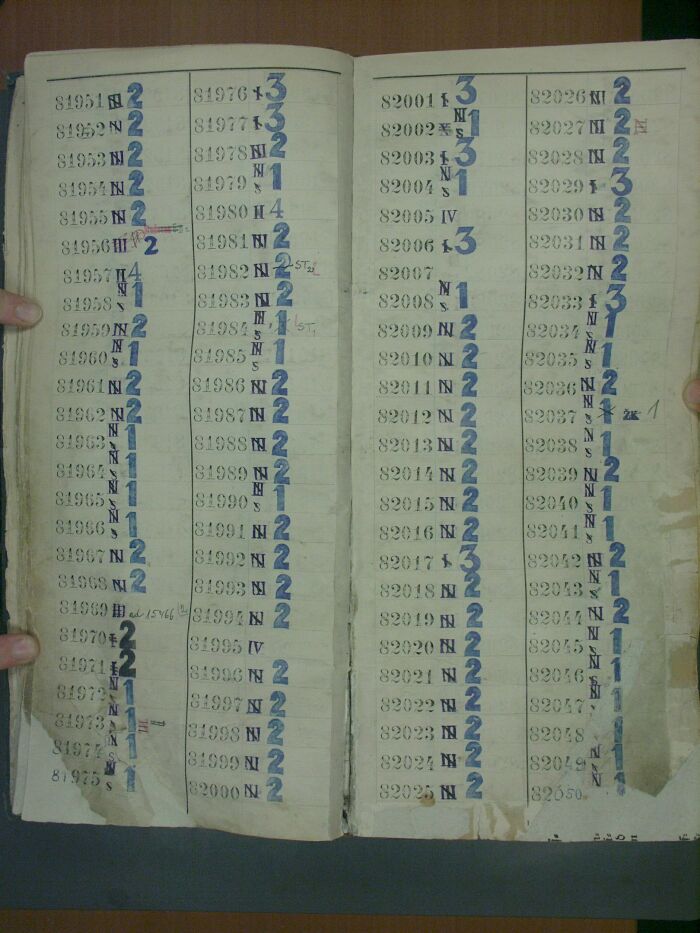 81951 N 2
81952 N 2
81953 N 2
81954 N 2
81955 N 2
81956 III 2
81957 II 4
81958 N s 1
81959 N 2
81960 N s 1
81961 N 2
81962 N 2
81963 N s 1
81964 N s 1
81965 N s 1
81966 N s 1
81967 N 2
81968 N 2
81969 III ad 15466
81970 I 2
81971 I 2
81972 N 1
81973 N 1 III
81974 N s 1
81975 N s 1
81976 I 3
81977 I 3
81978 N 2
81979 N s 1
81980 II 4
81981 N 2
81982 N 2 ST 2
81983 N 2
81984 N s 1 ST 1
81985 N s 1
81986 N 2
81987 N 2
81988 N 2
81989 N 2
81990 N s 1
81991 N 2
81992 N 2
81993 N 2
81994 N 2
81995 IV
81996 N 2
81997 N 2
81998 N 2
81999 N 2
82000 N 2
82001 I 3
82002 N s 1
82003 I 3
82004 N s 1
82005 IV
82006 I 3
82007
82008 N s 1
82009 N 2
82010 N 2
82011 N 2
82012 N 2
82013 N 2
82014 N 2
82015 N 2
82016 N 2
82017 I 3
82018 N 2
82019 N 2
82020 N 2
82021 N 2
82022 N 2
82023 N 2
82024 N 2
82025 N 2
82026 N 2
82027 N 2
82028 N 2
82029 I 3
82030 N 2
82031 N 2
82032 N 2
82033 I 3
82034 N s 1
82035 N s 1
82036 N 2
82037 N s 1 ZK 1
82038 N s 1
82039 N 2
82040 N s 1
82041 N s 1
82042 N 2
82043 N s 1
82044 N 2
82045 N s 1
82046 N s 1
82047 N 1
82048 1
82049 N s 1
82050 N 1